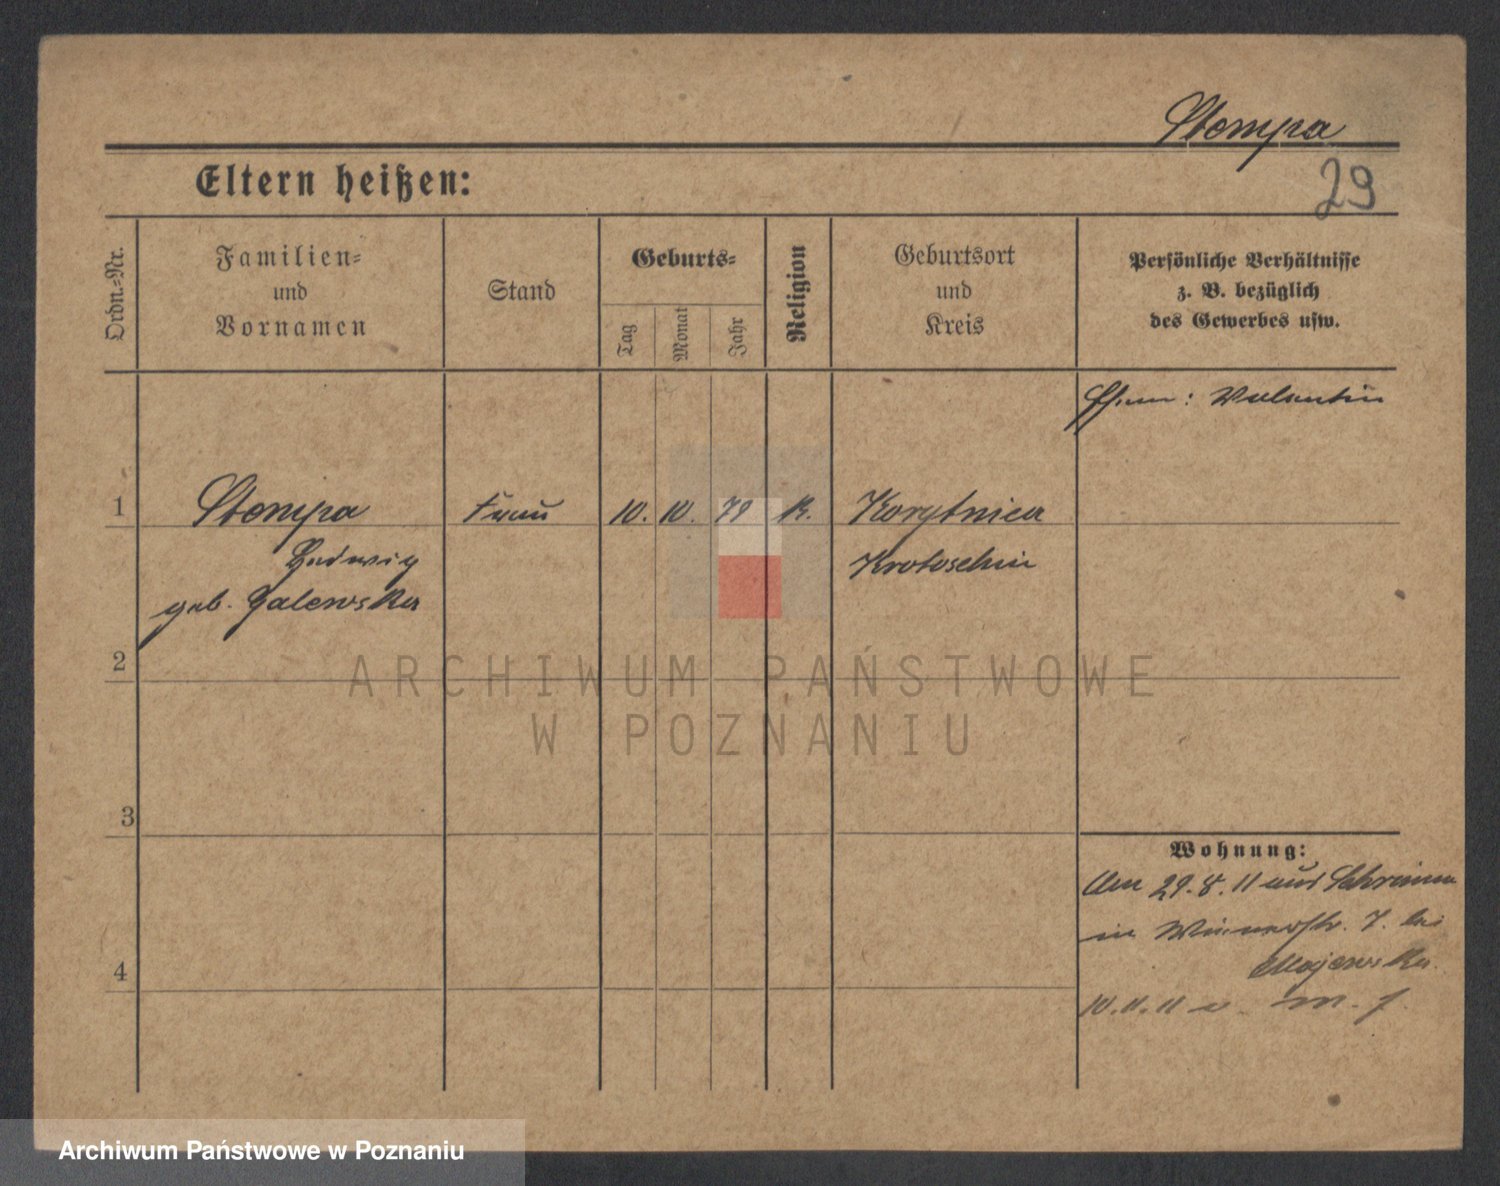 Stompa
29
Eltern heißen:
Ordn.-Nr.
Familien-
und
Vornamen
Stand
Geburts-
Tag
Monat
Jahr
Religion
Geburtsort
und
Kreis
Persönliche Verhältnisse
z. B. bezüglich
des Gewerbes usw.
Ehem: Valentin
1
Stompa
Frau
10.
10.
79
K.
Korytnica
Hedwig
Krotoschin
geb. Galewska
2
ARCHIWUM PAŃSTWOWE
W POZNANIU
3
Wohnung:
Am 29.8.11 aus Schrimm
in 7. bei
4
Majewska.
10.11.11
Archiwum Państwowe w Poznaniu